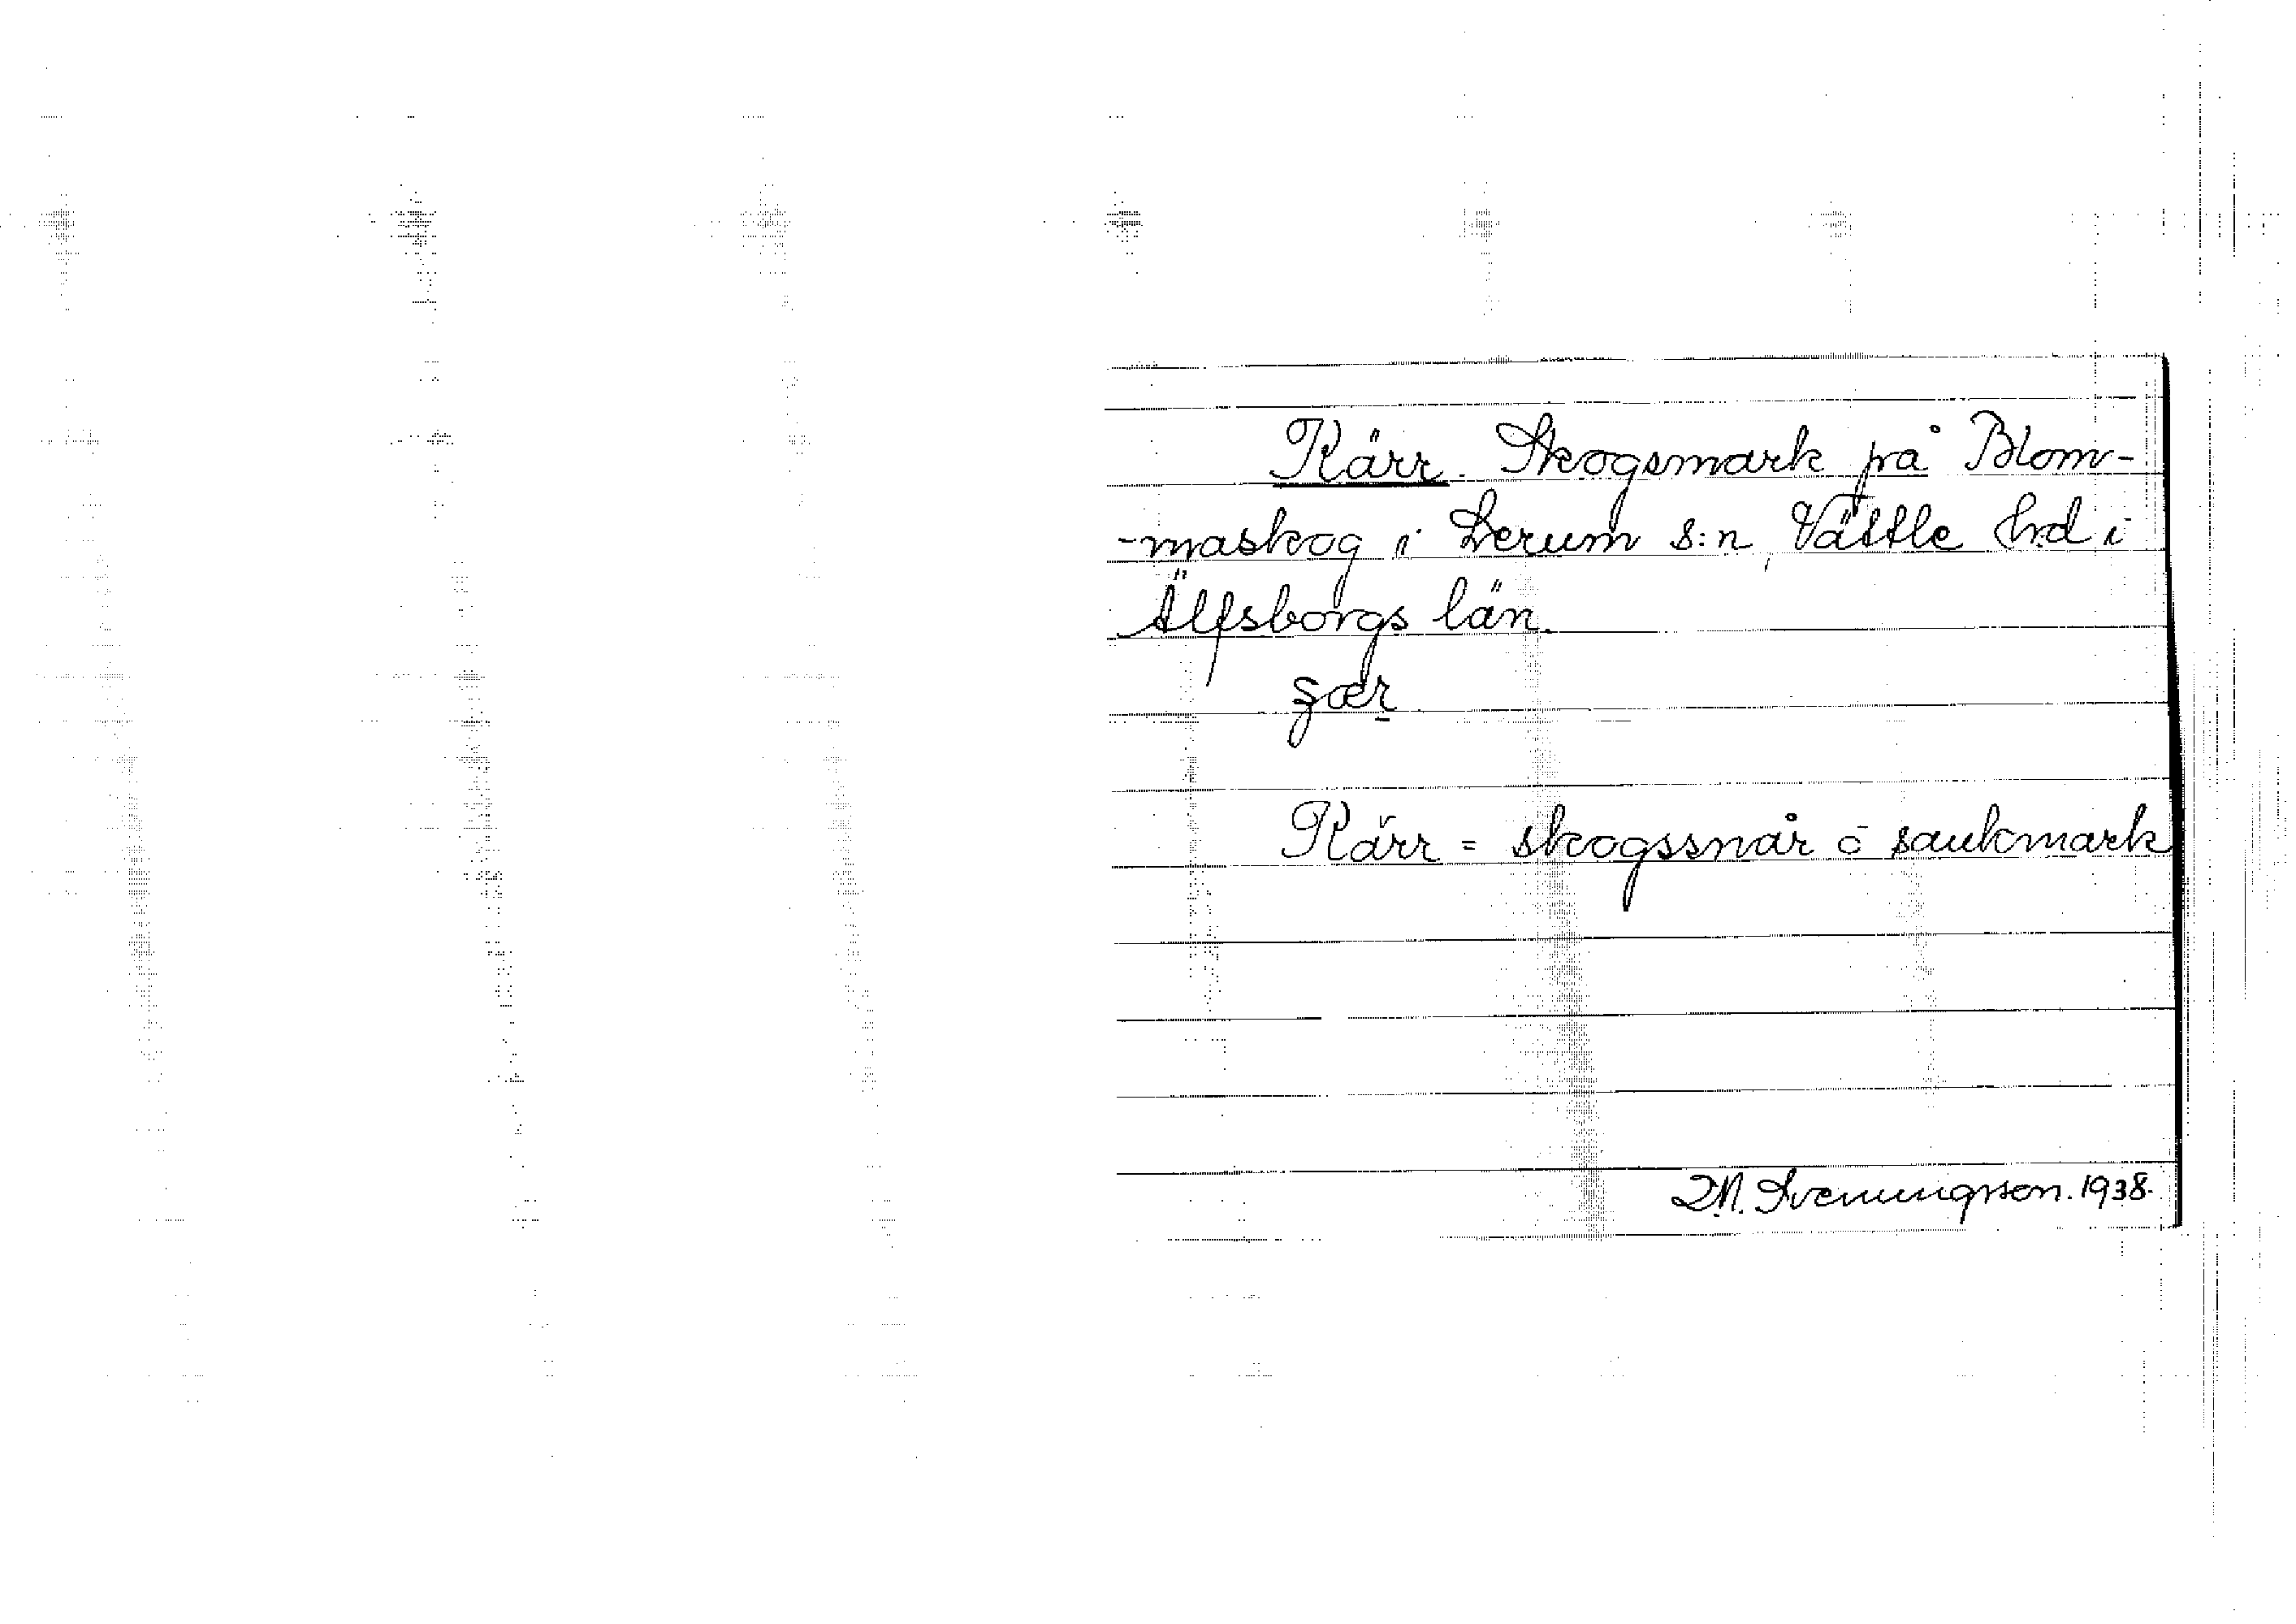 Kärr. Skogsmark på Blom-
-maskog i Lerum s:n, Vättle hd i
Älfsborgs län.
Kärr = skogssnår o sankmark
D.N. Svenungsson. 1938.